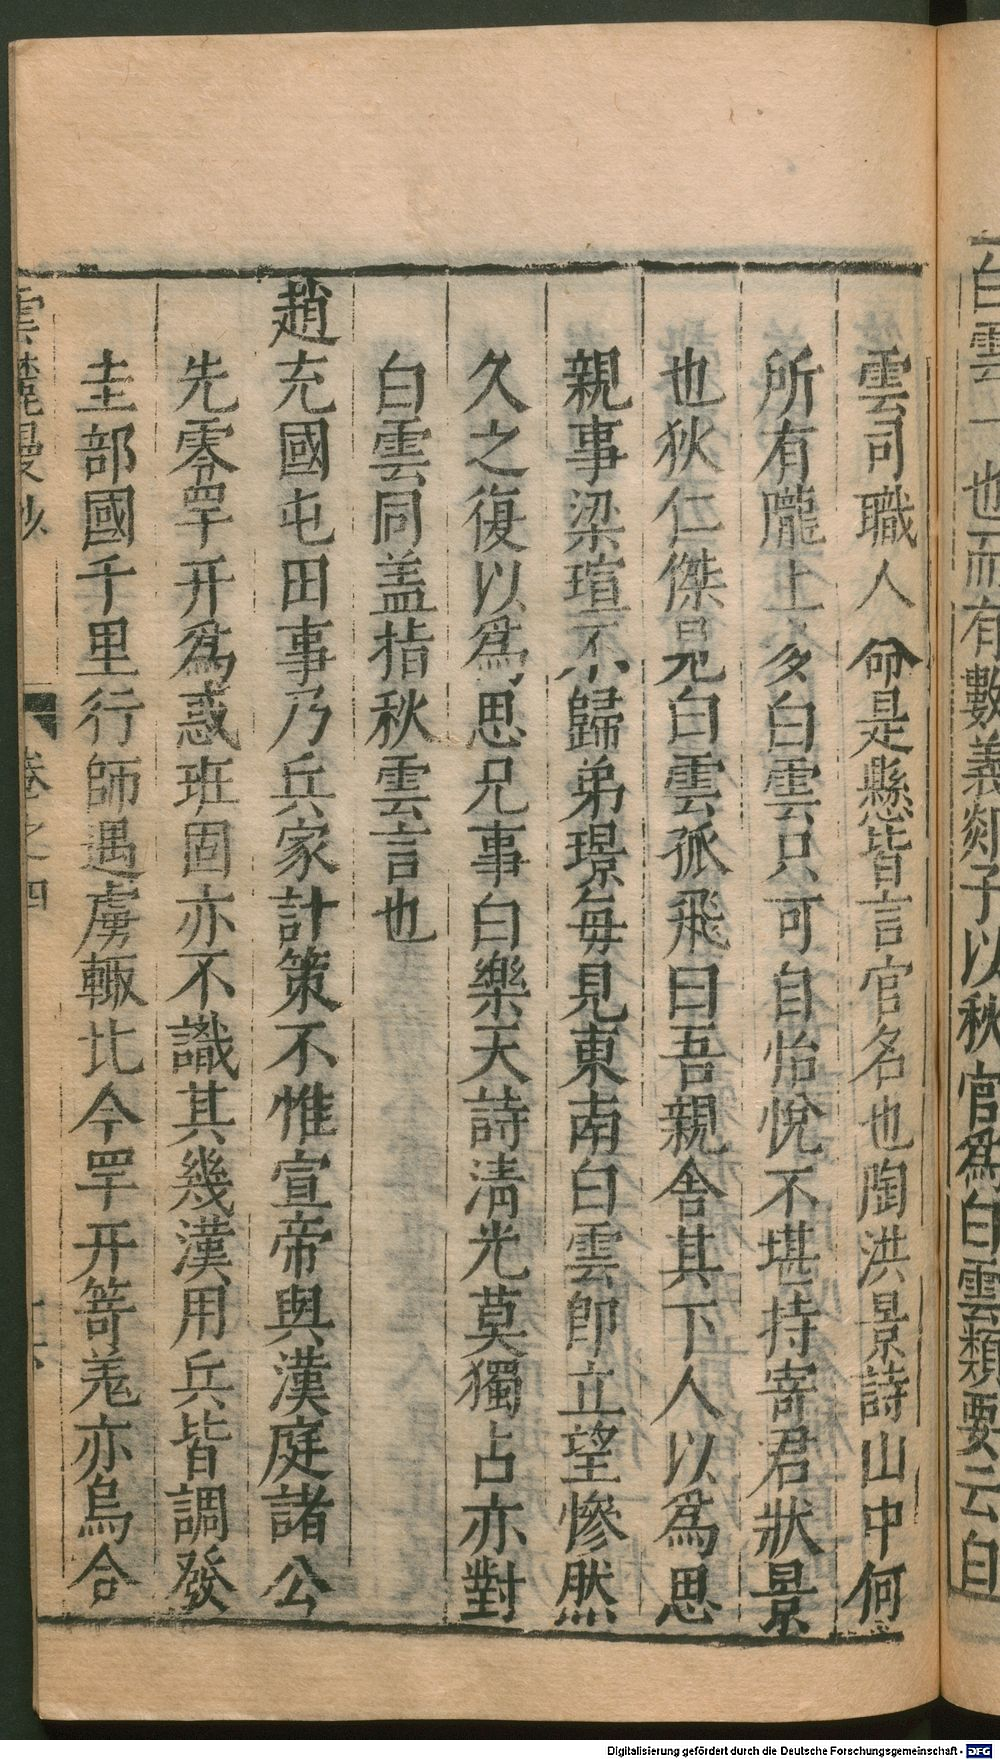 白雲一也而有數義郯子以秋官爲白雲類要云自
雲司職人命是懸皆言官名也陶洪景詩山中何
所有隴上多白雲只可自怡悅不堪持寄君狀景
也狄仁傑見白雲孤飛曰吾親舍其下人以爲思
親事梁瑄不歸弟璟每見東南白雲卽立望慘然
久之復以爲思兄事白樂天詩淸光莫獨占亦對
白雲同盖指秋雲言也
趙充國屯田事乃兵家計策不惟宣帝與漢庭諸公
先零罕幵爲惑班固亦不識其幾漢用兵皆調發
圭部國千里行師遇虜輙比今罕幵笴羗亦烏合
雲麓漫抄 卷之四 十六
Digitalisierung gefördert durch die Deutsche Forschungsgemeinschaft - DFG